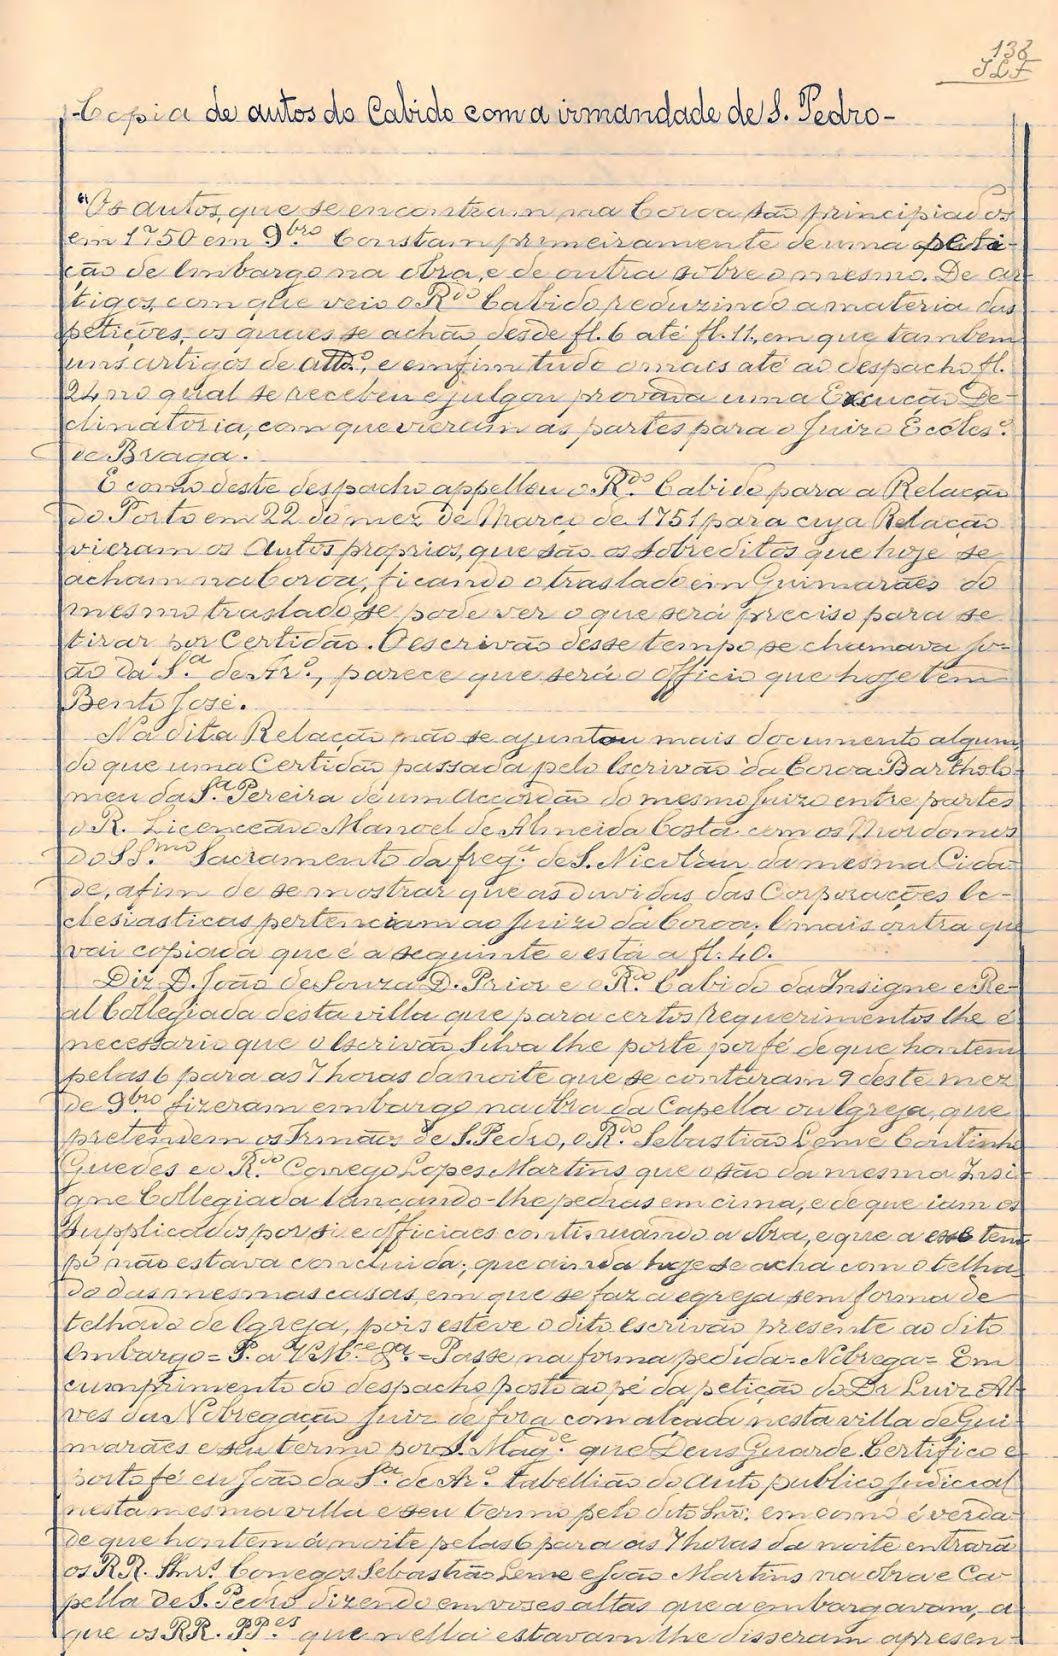 138
JLF
-Copia de autos do Cabido com a irmandade de S. Pedro-
"Os autos, que se encontram na Coroa são principiados
em 1750 em 9.bro Constam primeiramente de uma peti-
ção de Embargo na obra, e de outra sobre o mesmo. De ar-
tigos, com que veio o Rdo Cabido reduzindo a materia das
petições, os quaes se achão desde fl. 6 até fl. 11, em que tambem
uns artigos de atto, e emfim tudo o mais até ao despacho fl.
24 no qual se recebeu e julgou provada uma Excução De-
clinatoria, com que vieram as partes para o Juizo Eccles.o
de Braga.
E como deste despacho appellou o R.do Cabido para a Relação
do Porto em 22 do mez de Março de 1751 para cuja Relação
vieram os Autos proprios, que são os sobreditos que hoje se
acham na Coroa, ficando o traslado em Guimarães do
mesmo traslado se pode ver o que será preciso para se
tirar por Certidão. O escrivão desse tempo se chamava Jo-
ão da S.a de Ar.o, parece que será o Officio que hoje tem
Bento José.
Na dita Relação não se ajuntou mais documento algum
do que uma Certidão passada pelo Escrivão da Coroa Bartholo-
meu da S.a Pereira de um Accordão do mesmo Juizo entre partes
o R. Licenceado Manoel de Almeida Costa com os Mordomos
do SS.mo Sacramento da freg.a de S. Nicolau da mesma Cida-
de, afim de se mostrar que as duvidas das Corporações Ec-
clesiasticas pertenciam ao Juizo da Coroa; E mais outra que
vai copiada que é a seguinte e está a fl. 40.
Diz D. João de Souza D. Prior e o R.do Cabido da Insigne e Re-
al Collegiada desta villa que para certos requerimentos lhe é
necessario que o Escrivão Silva lhe porte por fé de que hontem
pelas 6 para as 7 horas da noite que se contaram 9 deste mez
de 9bro fizeram embargo na obra da Capella ou Igreja, que
pretendem os Irmãos de S. Pedro, o R.do Sebastião Leme Coutinho
Guedes e o R.do Conego Lopes Martins que o são da mesma Insi-
gne Collegiada lançando-lhe pedras em cima, e de que iam os
Supplicados por si e officiaes continuando a obra, e que a esse tem-
po não estava concluida; que ainda hoje se acha com o telha-
do das mesmas casas, em que se faz a egreja sem forma de
telhado de Igreja, pois esteve o dito escrivão presente ao dito
Embargo = P. a V. M.ce = Passe na forma pedida = Nobrega = Em
cumprimento do despacho posto ao pé da petição do Dr Luiz Al-
ves da Juiz de fora com alçada nesta villa de Gui-
marães e seu termo por S. Mag.de que Deus Guarde. Certifico e
porto fé eu João da S.a de Ar.o tabellião do Auto publico Judicial
nesta mesma villa e seu termo pelo dito Snr. em como é verda-
de que hontem á noite pelas 6 para as 7 horas da noite entrará
os RR. Snr.s Conegos Sebastião Leme e João Martins na obra e Ca-
pella de S. Pedro dizendo em voses altas que a embargavam, a
que os RR. PP.es que nella estavam lhe disseram apresen-